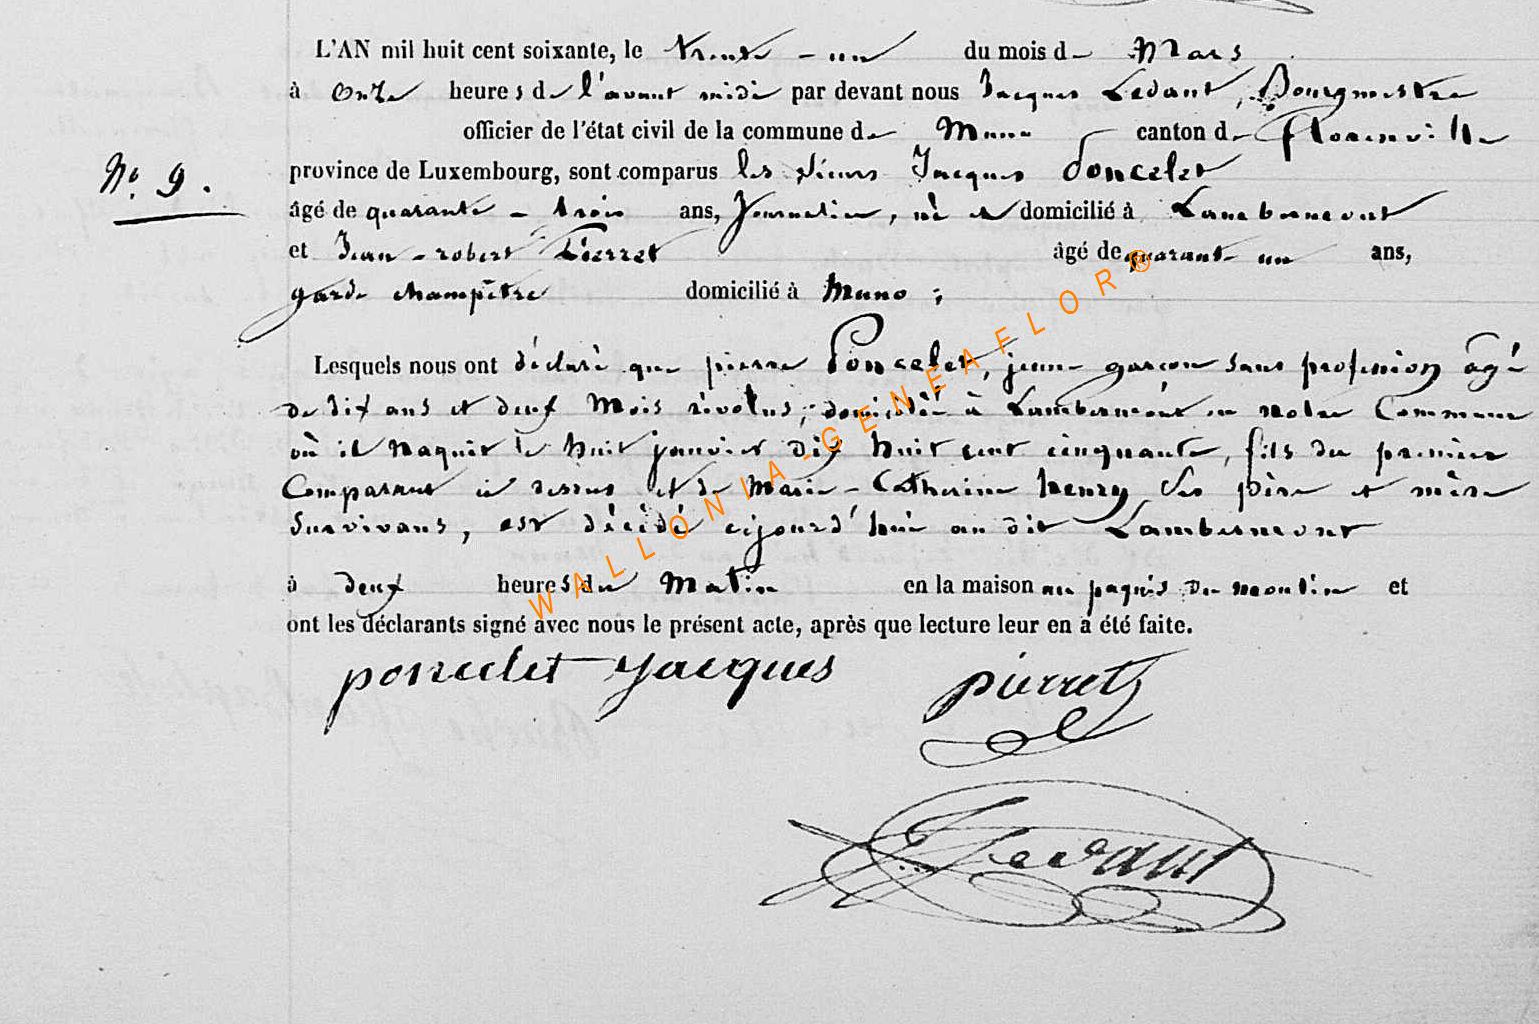 L'AN mil huit cent soixante, le trente - un du mois de Mars
à Onze heures de l'avant midi par devant nous Jacques Ledant, Bourgmestre
officier de l'état civil de la commune de Muno canton de Florenville
N° 9.
province de Luxembourg, sont comparus les sieurs Jacques Poncelet
âgé de quarante - trois ans, Journalier, né et domicilié à Lambermont
et Jean - robert Pierret âgé de quarante un ans,
garde champêtre domicilié à Muno ;
Lesquels nous ont déclaré que pierre Poncelet, jeune garçon sans profession âgé
de dix ans et deux Mois révolus, domicilié à Lambermont en notre Commune
où il naquit le huit janvier dix huit cent cinquante, fils du premier
Comparant ci dessus, et de Marie - Catherine henry, ses père et mère
Survivans, est décédé cejourd'hui au dit Lambermont
à deux heures du Matin en la maison au paquis du moulin et
ont les déclarants signé avec nous le présent acte, après que lecture leur en a été faite.
poncelet Jacques pierret
J Ledant
WALLONIA-GENEAFLOR®